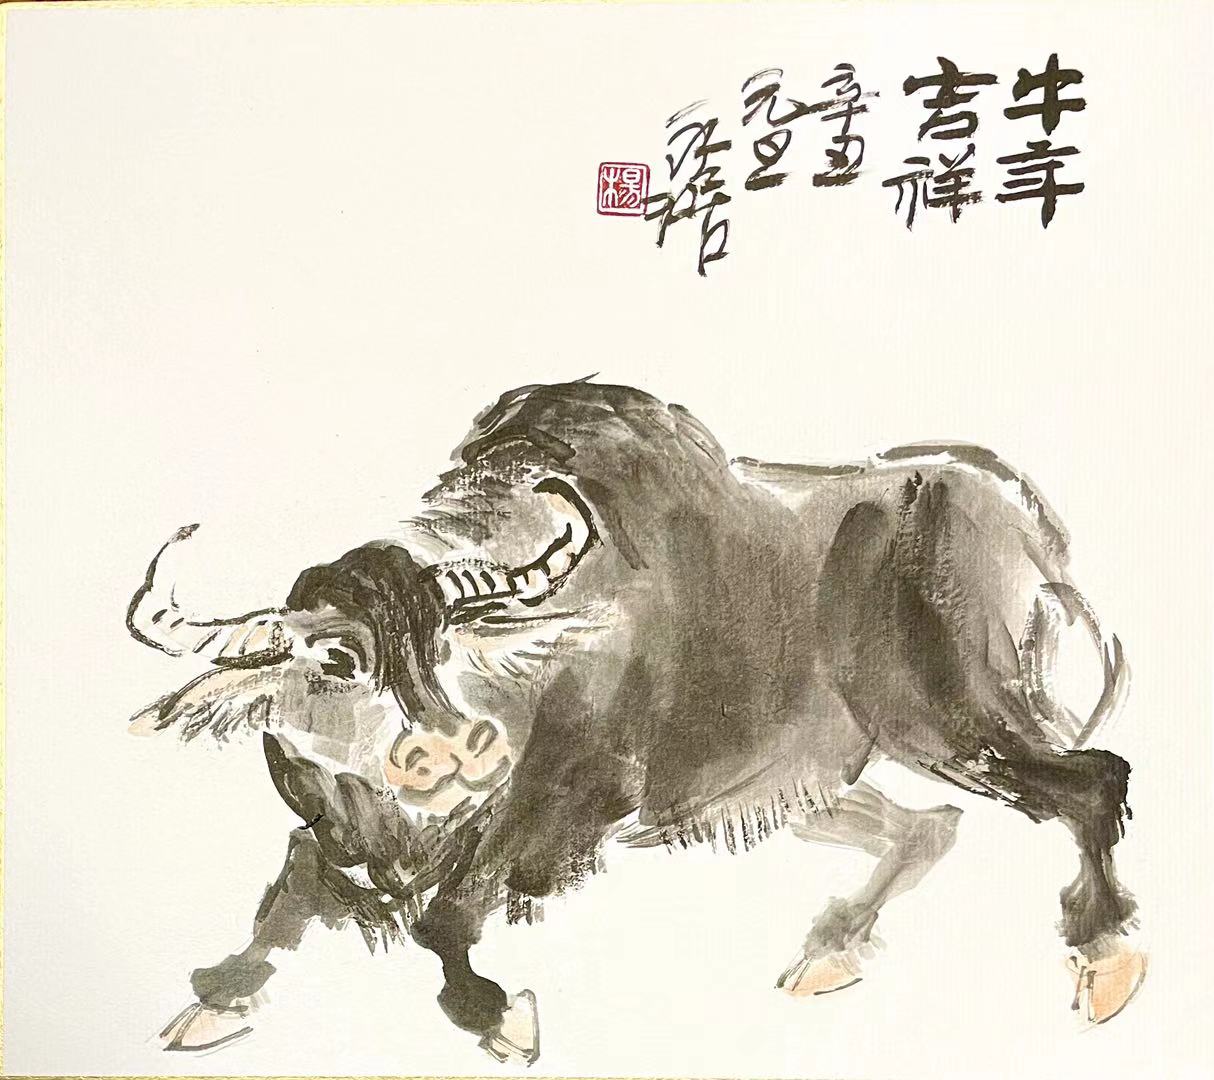 牛年
吉祥
辛丑
元旦
楊